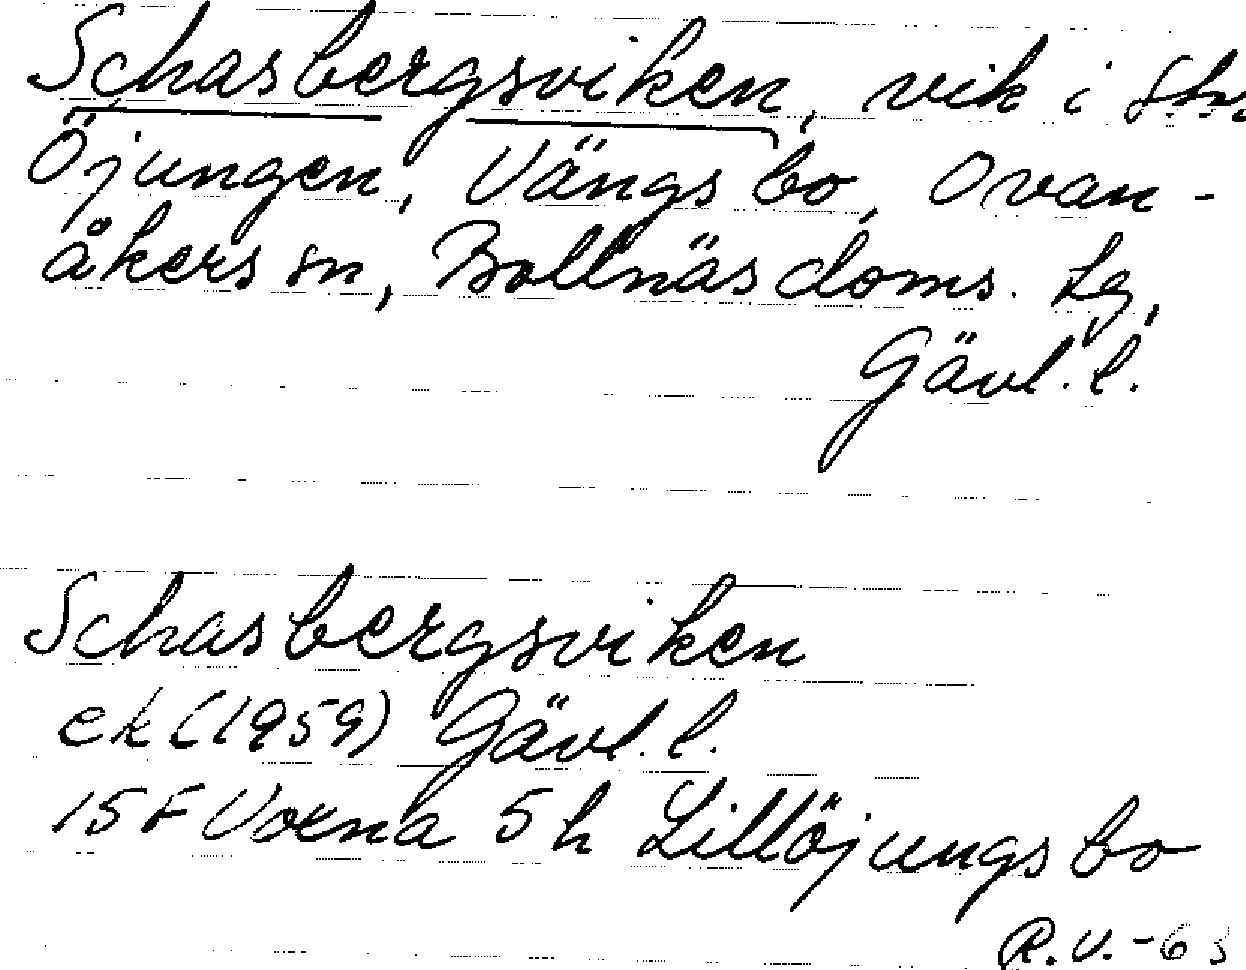 Schasbergsviken, vik i
Öjungen, Vängsbo, Ovan-
åkers sn, Bollnäs doms. Lg,
Gävl. l.
Schasbergsviken
ek (1959) Gävl. l.
15F Voxna 5h Lillöjungsbo
R.V.-63